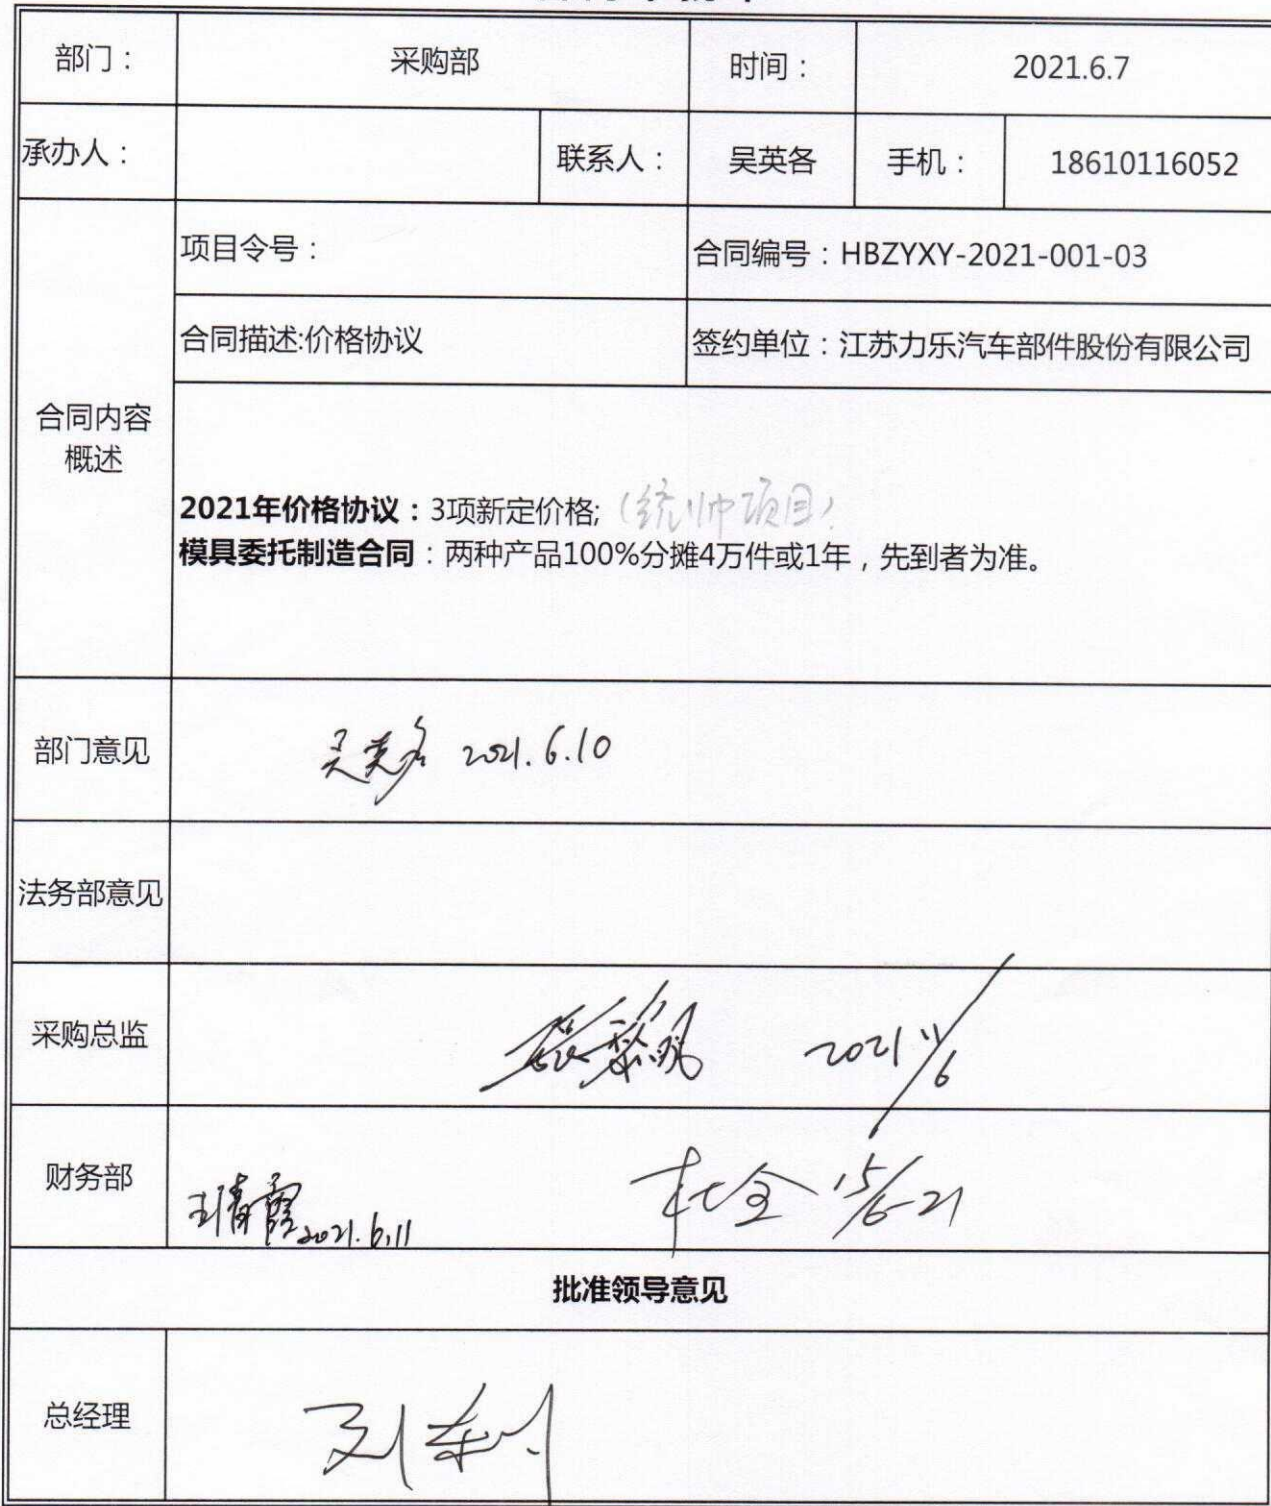 部门： 采购部 时间： 2021.6.7
承办人： 联系人： 吴英各 手机： 18610116052
项目令号： 合同编号：HBZYXY-2021-001-03
合同描述:价格协议 签约单位：江苏力乐汽车部件股份有限公司
合同内容
概述
2021年价格协议：3项新定价格;（统帅项目）
模具委托制造合同：两种产品100%分摊4万件或1年，先到者为准。
部门意见 吴英各 2021.6.10
法务部意见
采购总监 2021 11/6
财务部 王清霞 2021.6.11 杜全 15/6-21
批准领导意见
总经理